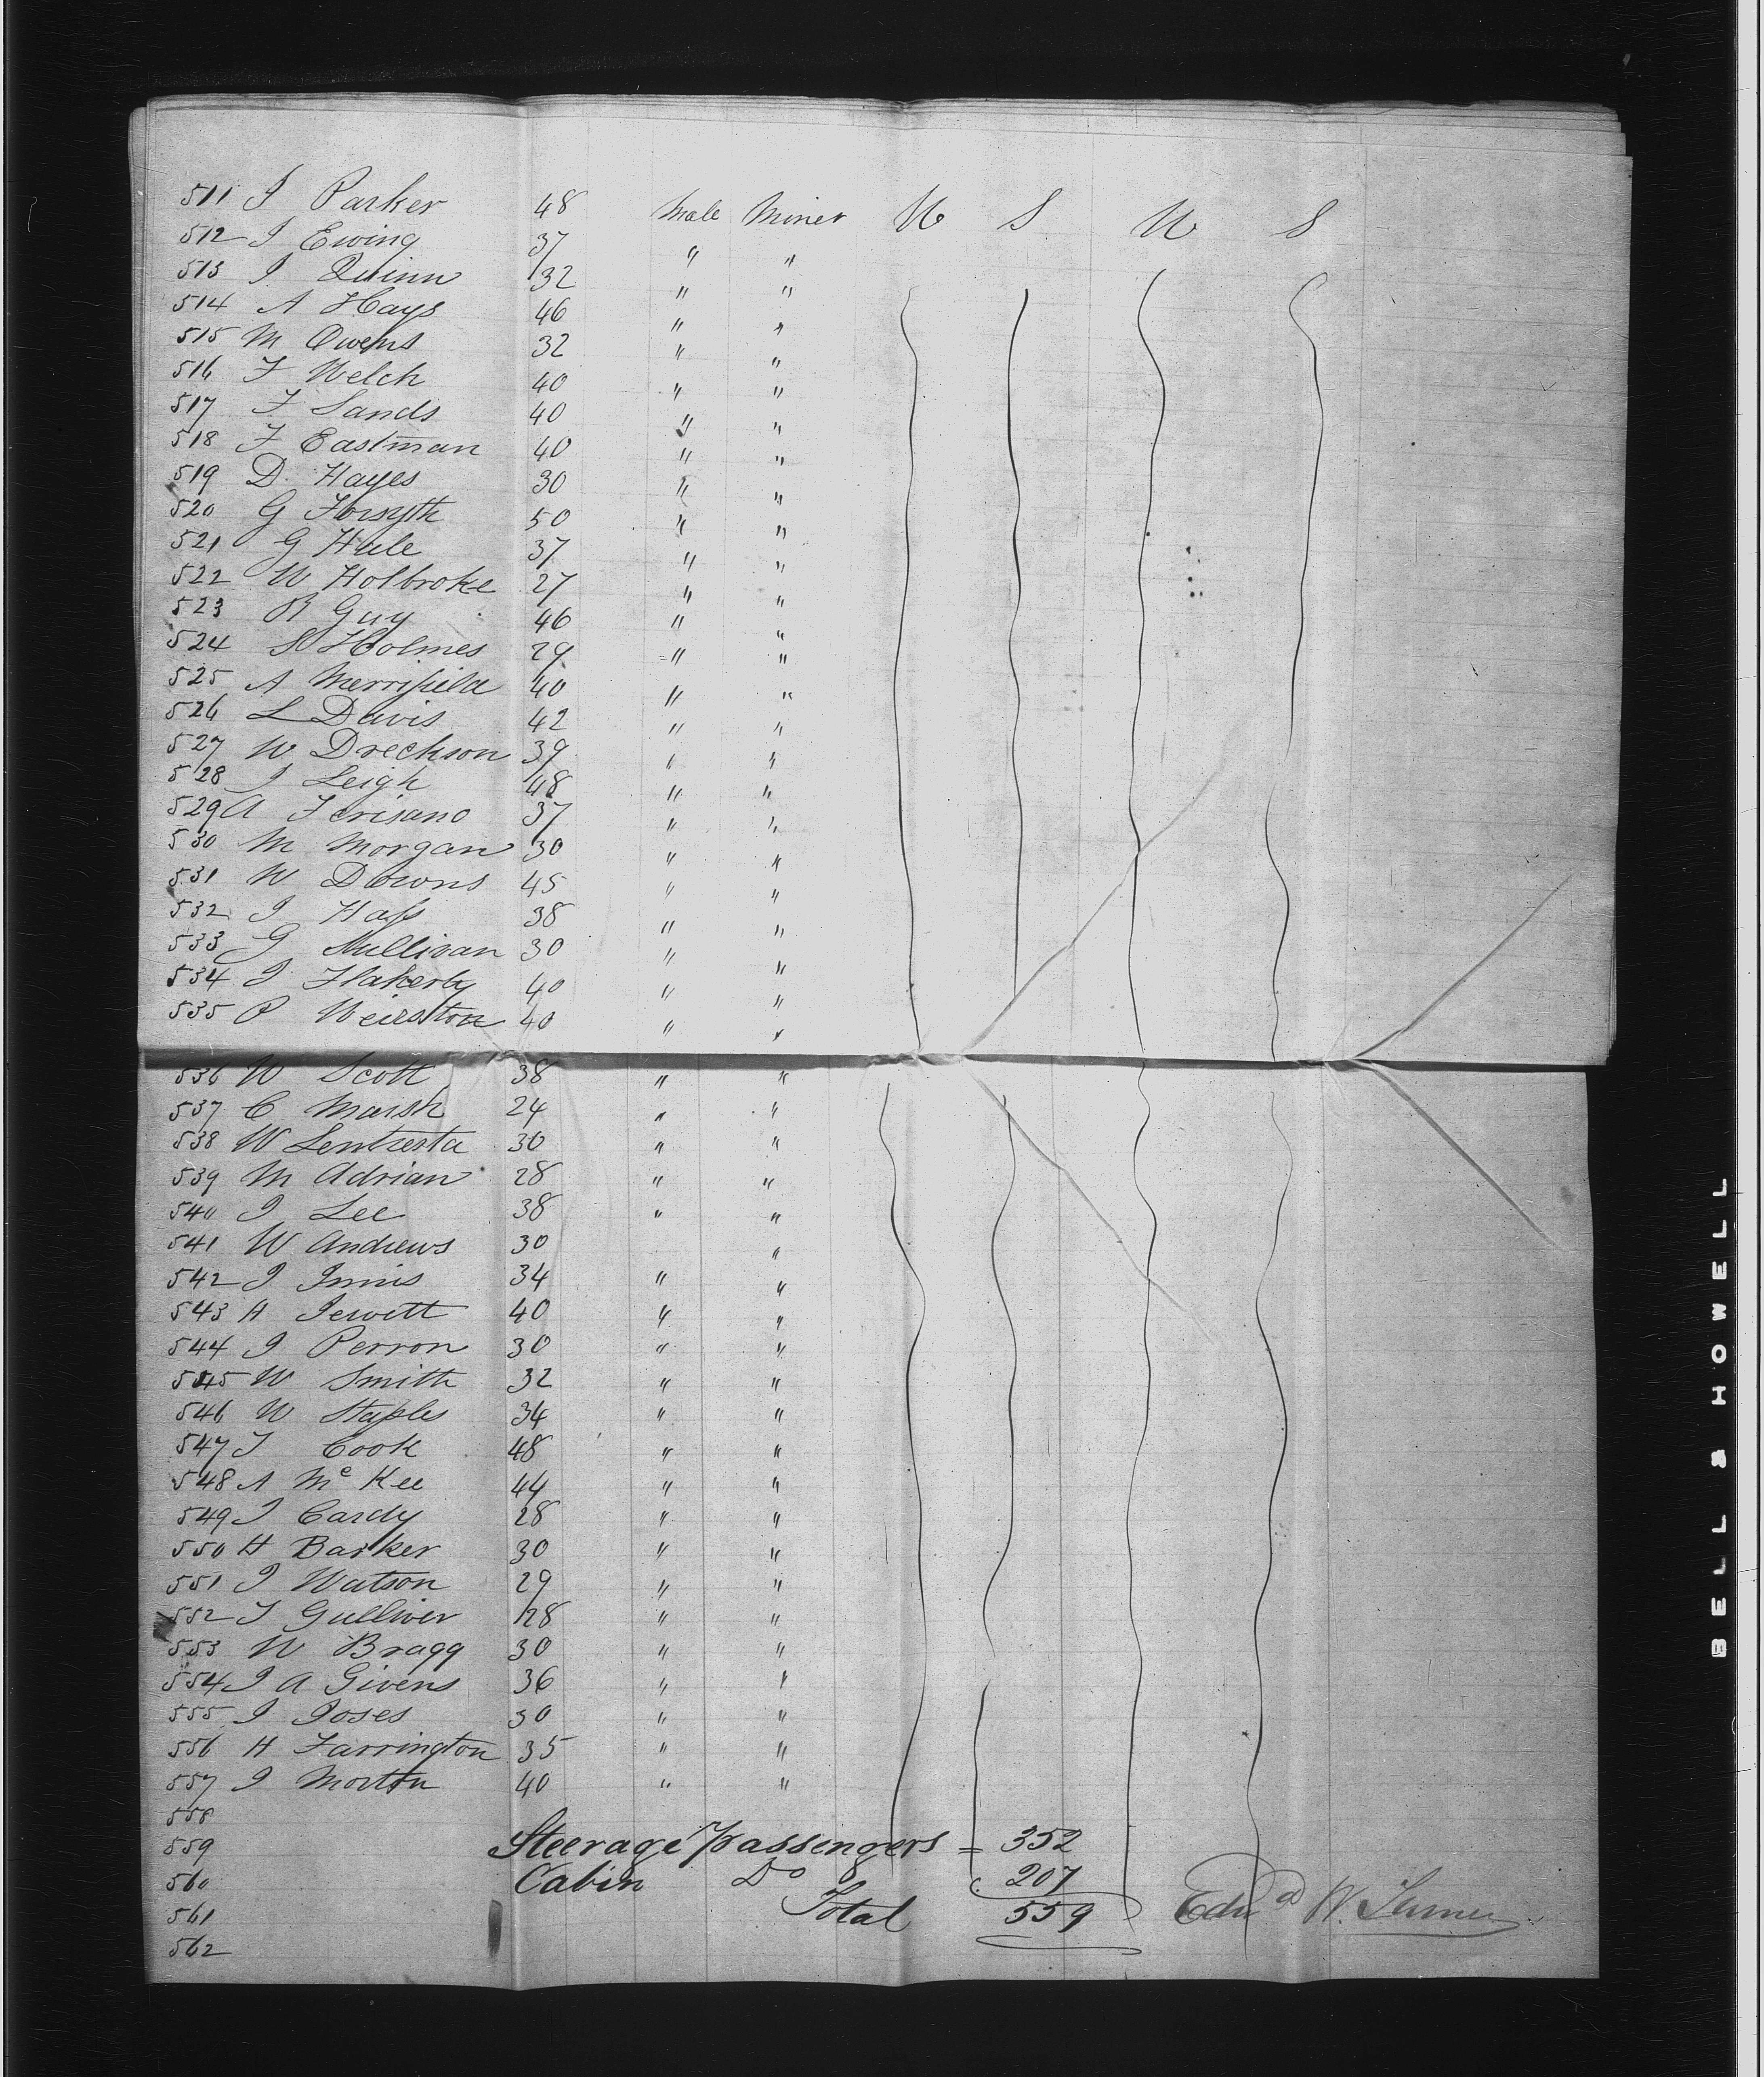 511 J Parker 48 Male Miner U S U S
512 J Ewing 37 " "
513 J Quinn 32 " "
514 A Hays 46 " "
515 M Owens 32 " "
516 F Welch 40 " "
517 F Sands 40 " "
518 F Eastman 40 " "
519 D. Hayes 30 " "
520 G Forsyth 50 " "
521 G Hale 37 " "
522 W Holbroke 27 " "
523 R Guy 46 " "
524 S Holmes 29 " "
525 A Merrifield 40 " "
526 L Davis 42 " "
527 W Dreckson 39 " "
528 J Leigh 48 " "
529 A Ferisano 37 " "
530 M Morgan 30 " "
531 W Downs 45 " "
532 J Hass 38 " "
533 G Mullivan 30 " "
534 J Flakerty 40 " "
535 P 40 " "
536 W Scott 38 " "
537 C Marsh 24 " "
538 W 30 " "
539 M Adrian 28 " "
540 J Lee 38 " "
541 W Andrews 30 "
542 J Innis 34 " "
543 H Jewett 40 " "
544 J Perron 30 " "
545 W Smith 32 " "
546 W Staples 34 " "
547 T Cook 48 " "
548 A McKee 44 " "
549 J Cardy 28 " "
550 H Barker 30 " "
551 J Watson 29 " "
552 T Gulliver 28 " "
553 W Bragg 30 " "
554 J A Givens 36 " "
555 J Joses 30 " "
556 H Farrington 35 " "
557 J Morton 40 " "
558
559 Steerage passengers = 352
560 Cabin Do 207
561 Total 559 Edwd W.
562
BELL & HOWELL